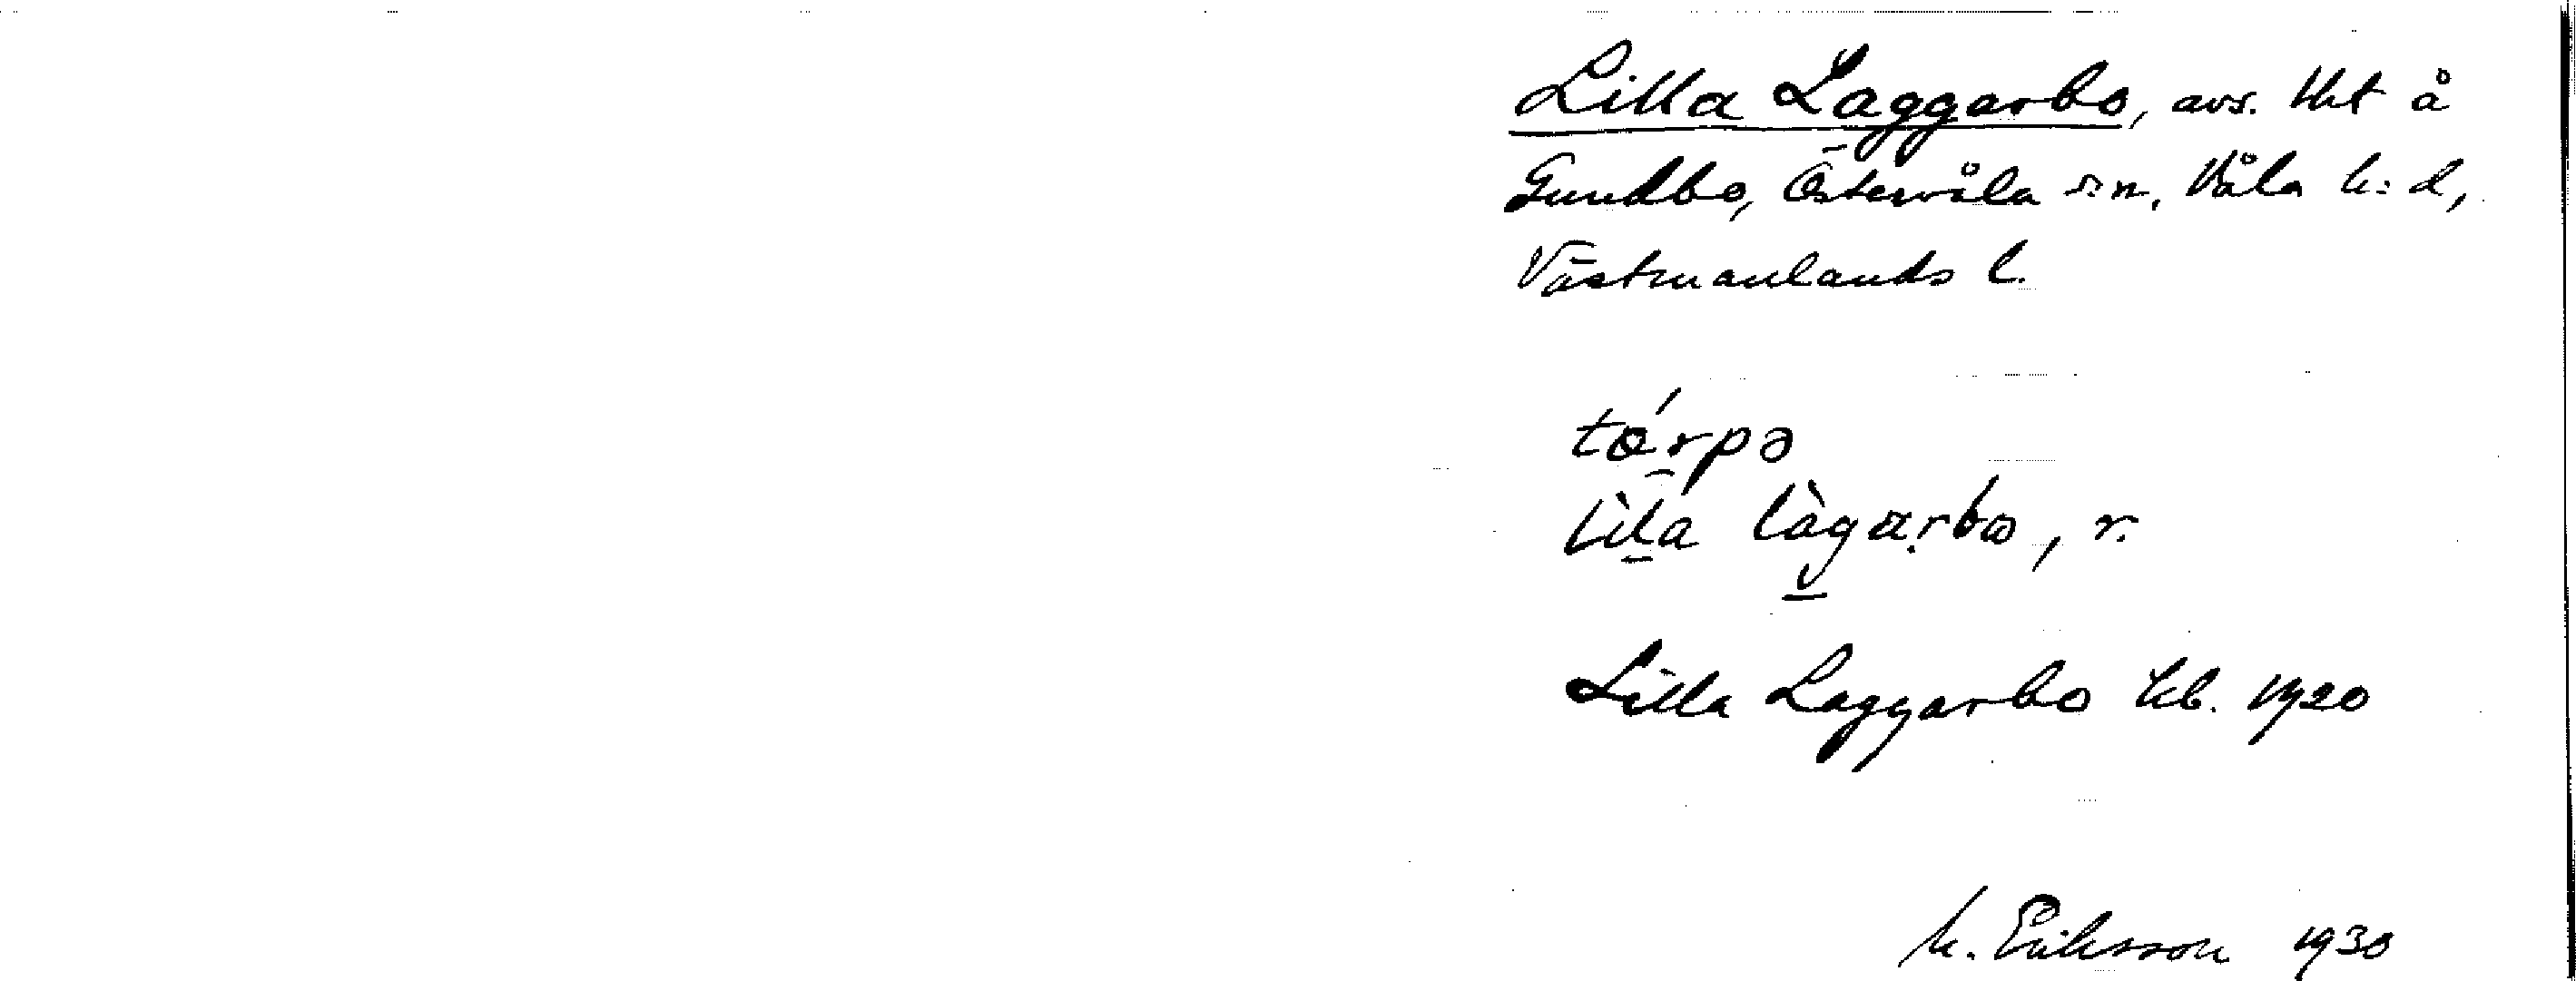 Lilla Laggarbo, avs. tht å
Gundbo, Östervåla s:n, Våla h:d,
Västmanlands l.
tórpə
lìla làgarbo, r.
Lilla Laggarbo kb. 1920
M. Eriksson 1930